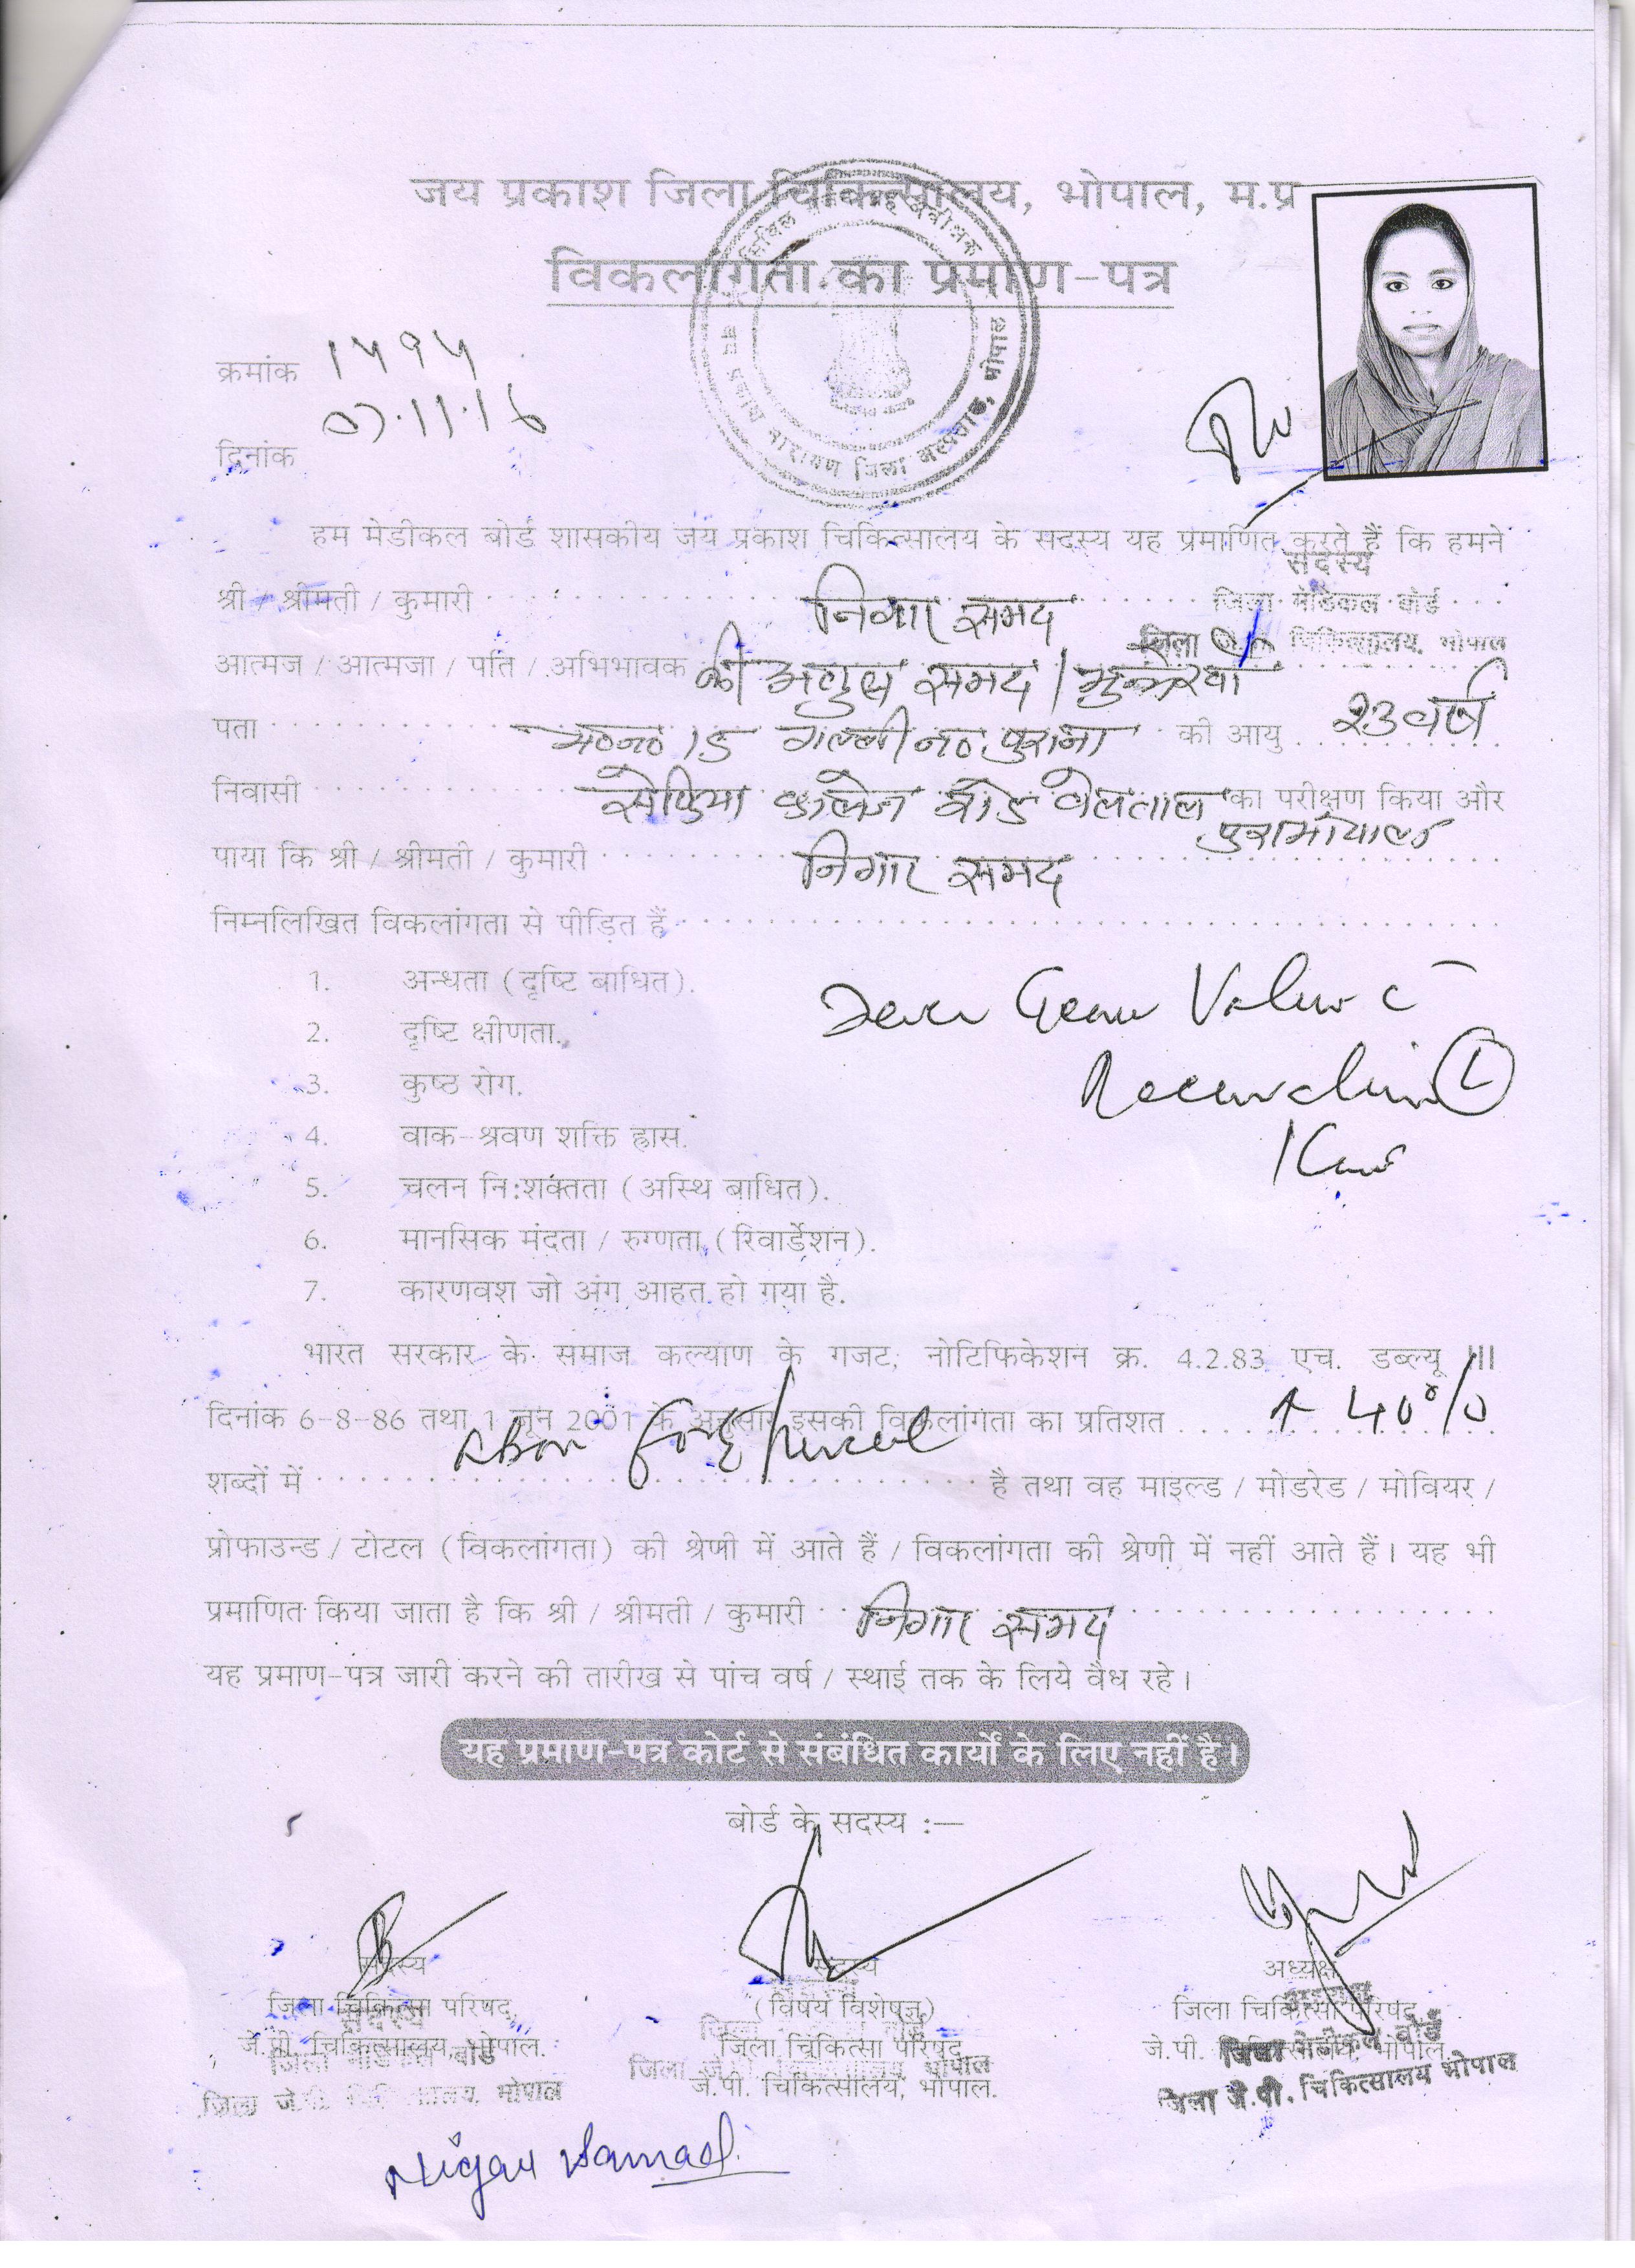 जय प्रकाश जिला चिकित्सालय, भोपाल, म.प्र
विकलांगता का प्रमाण-पत्र
क्रमांक
दिनांक 07.11.16
हम मेडीकल बोर्ड शासकीय जय प्रकाश चिकित्सालय के सदस्य यह प्रमाणित करते हैं कि हमने
सदस्य
श्री / श्रीमती / कुमारी निगार समद
जिला मेडिकल बोर्ड
चिकित्सालय, भोपाल
आत्मज / आत्मजा / पति / अभिभावक समद
पता गल्ली नं. पुराना की आयु 23 वर्ष
निवासी कालेज रोड का परीक्षण किया और
पाया कि श्री / श्रीमती / कुमारी निगार समद
निम्नलिखित विकलांगता से पीड़ित हैं
1. अन्धता (दृष्टि बाधित).
2. दृष्टि क्षीणता.
3. कुष्ठ रोग.
4. वाक-श्रवण शक्ति ह्रास.
5. चलन नि:शक्तता (अस्थि बाधित).
6. मानसिक मंदता / रुग्णता (रिवार्डेशन).
7. कारणवश जो अंग आहत हो गया है.
Genu Valgum
भारत सरकार के समाज कल्याण के गजट, नोटिफिकेशन क्र. 4.2.83 एच. डब्ल्यू III
दिनांक 6-8-86 तथा 1 जून 2001 के अनुसार इसकी विकलांगता का प्रतिशत 40%
शब्दों में है तथा वह माइल्ड / मोडरेड / मोवियर /
प्रोफाउन्ड / टोटल (विकलांगता) की श्रेणी में आते हैं / विकलांगता की श्रेणी में नहीं आते हैं। यह भी
प्रमाणित किया जाता है कि श्री / श्रीमती / कुमारी निगार समद
यह प्रमाण-पत्र जारी करने की तारीख से पांच वर्ष / स्थाई तक के लिये वैध रहे।
यह प्रमाण-पत्र कोर्ट से संबंधित कार्यों के लिए नहीं है।
बोर्ड के सदस्य :—
सदस्य
जिला चिकित्सा परिषद,
जे.पी. चिकित्सालय, भोपाल.
सदस्य
(विषय विशेषज्ञ)
जिला चिकित्सा परिषद,
जे.पी. चिकित्सालय, भोपाल.
अध्यक्ष
जिला चिकित्सा परिषद,
जे.पी. चिकित्सालय, भोपाल.
जिला जे.पी. चिकित्सालय भोपाल
Nigar Samad